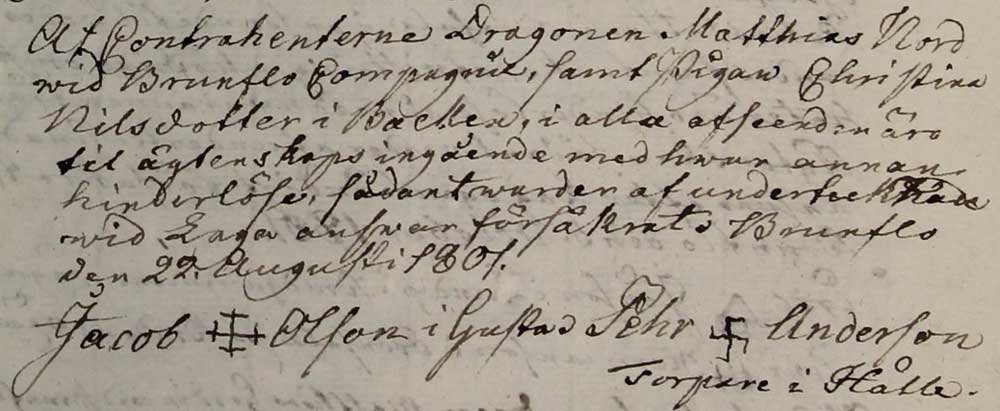 At Contrahenterne Dragonen Matthias Nord
wid Brunflo Compagnie, samt Pigan Christina
Nilsdotter i Backen, i alla afseenden äro
til ägtenskaps ingående med hwar annan
hinderlöse, sådant warder af undertecknade
wid Laga answar försäkrat. Brunflo
den 22. Augusti 1801.
Jacob Olson i Gusta Pehr Anderson
Torpare i Hälle.